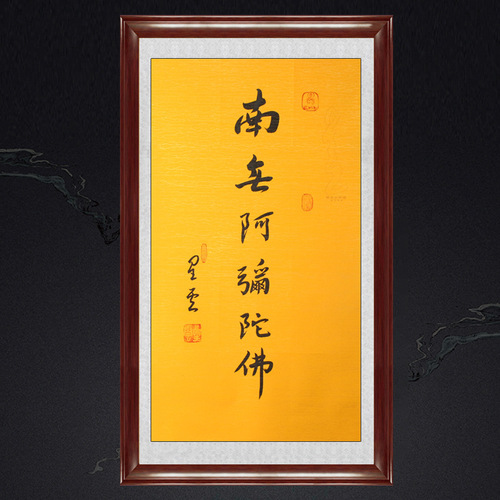 南无阿彌陀佛
星云